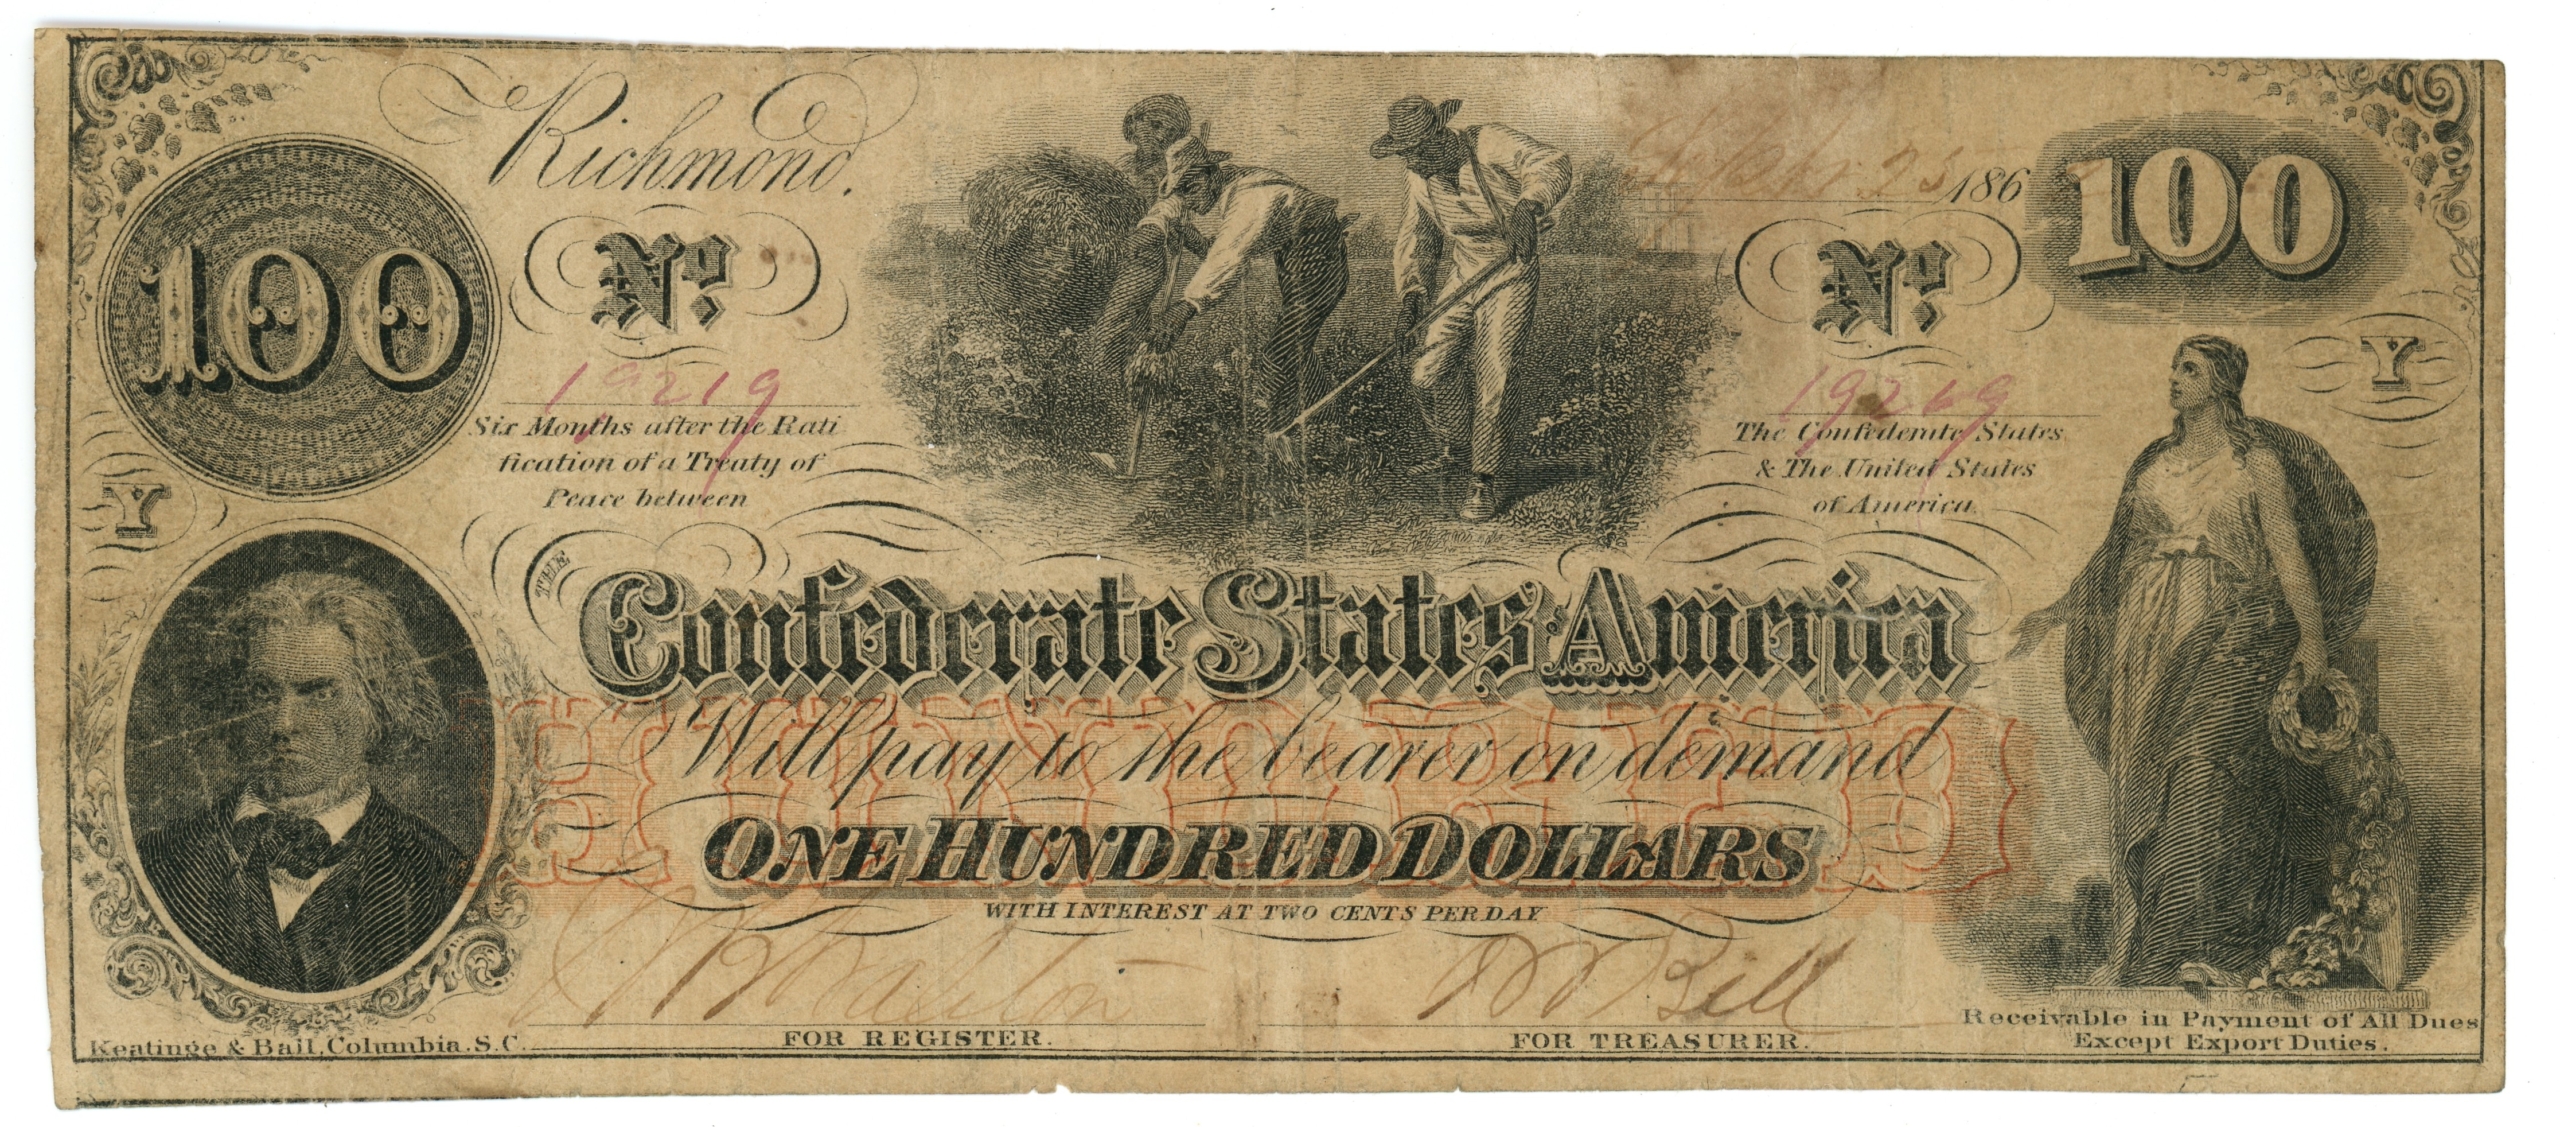 Richmond.
Septr. 25 186
100
100
No.
No.
19219
19269
Y
Y
Six Months after the Rati
fication of a Treaty of
Peace between
The Confederate States
& The United States
of America
THE
Confederate States America
HUNDRED
Will pay to the bearer on demand
ONE HUNDRED DOLLARS
WITH INTEREST AT TWO CENTS PER DAY
Bell
FOR REGISTER.
FOR TREASURER.
Keatinge & Ball, Columbia. S.C.
Receivable in Payment of All Dues
Except Export Duties.